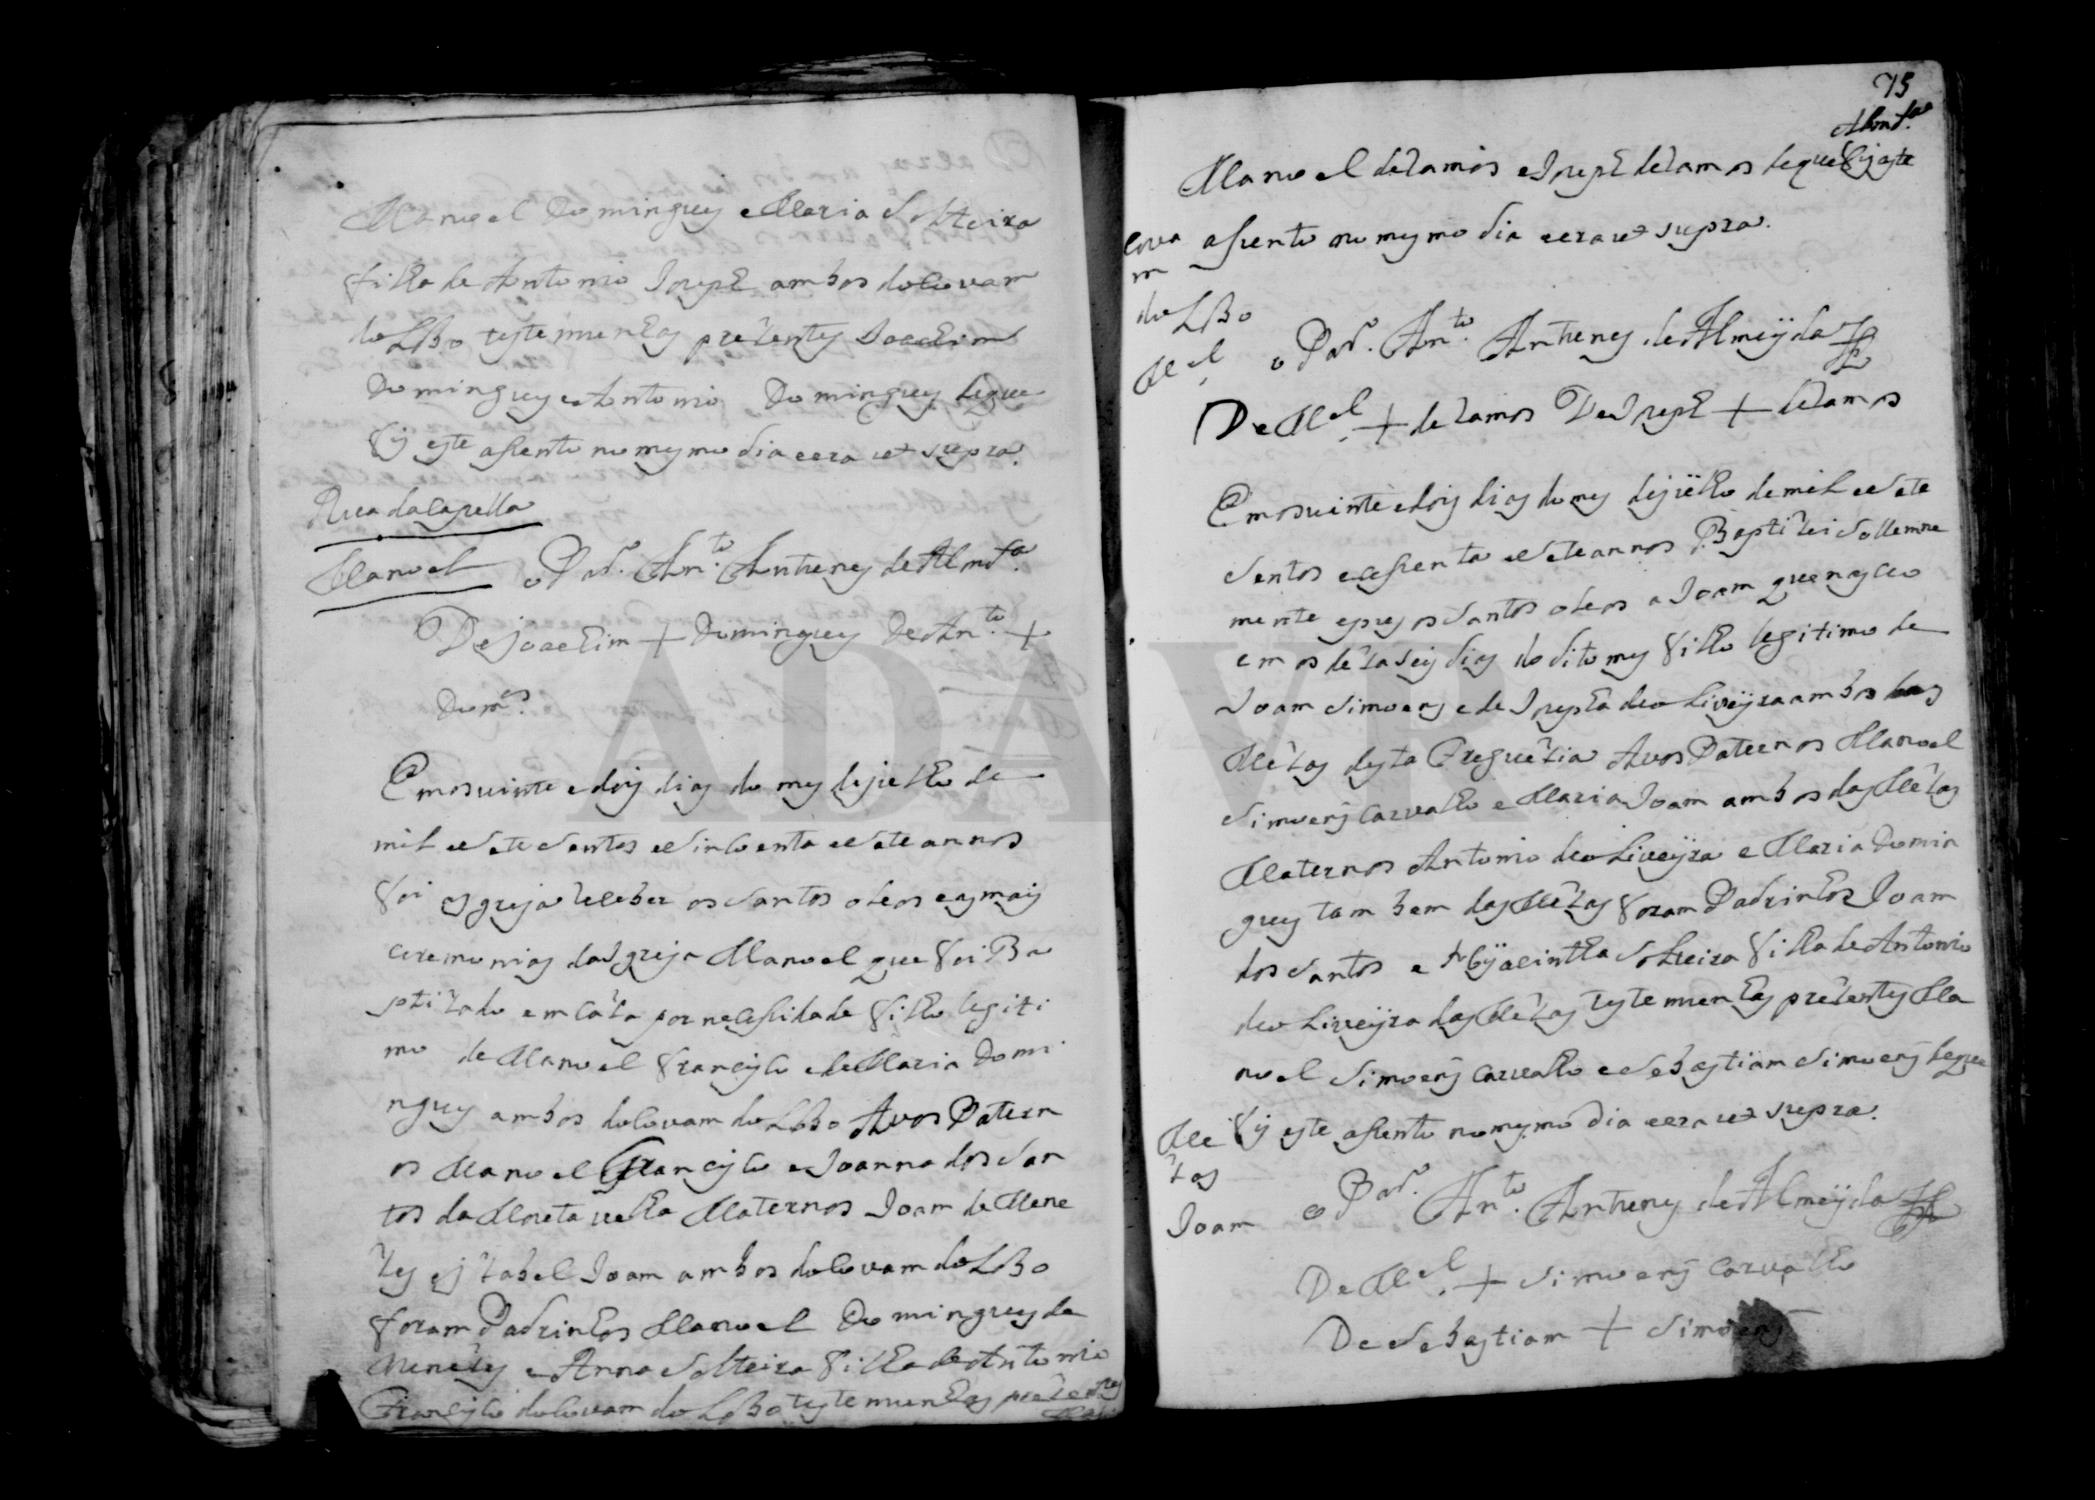 Manoel Dominguej e Maria Solteira
filha de Antonio Joseph ambos do Covam
do Lobo testemunhas prezentes Joachim
Dominguej e Antonio Dominguej de que
fis este asento no mesmo dia e era ut supra.
Rua da Capella
Manoel
o Pad.e An.to Antunes de Almd.a
De Joachim + Dominguej De An.to +
Dom.es
Em os vinte e dois dias do mes de julho de
mil e sete sentos e sincoenta e sete annos
foi a Igreja receber os santos oleos e as mais
ceremonias da Igreja Manoel que foi Ba
ptizado em caza por necessidade filho legiti
mo de Manoel francisco e de Maria Domi
nguej ambos do Covam do Lobo Avos Patern
os Manoel Francisco e Joanna dos San
tos da Moita velha Maternos Joam de Mene
zes e Izabel Joam ambos do Covam do Lobo
foram Padrinhos Manoel Dominguej de
Menezes e Anna Solteira filha de Antonio
Francisco do Covam do Lobo testemunhas prezentes
75
Almd.a
Manoel de Ramos e Joseph de Ramos de que fis este
asento no mesmo dia e era ut supra.
Cova
m
do Lobo
M.el
o Pad.e An.to Antunes de Almeijda
De M.el + de Ramos De Joseph + de Ramos
Em os vinte e dois dias do mes de julho de mil e sete
sentos e sincoenta e sete annos Baptizei Sollemne
mente e pus os santos oleos a Joam que nasceo
em os dezaseis dias do dito mes filho legitimo de
Joam Simoens e de Josepha de oLiveijra ambos das
Mezas desta Freguezia Avos Paternos Manoel
Simoens Carvalho e Maria Joam ambos das Mezas
Maternos Antonio de oLiveijra e Maria Domin
gues tambem das Mezas foram Padrinhos Joam
dos Santos e Hyjacintha Solteira filha de Antonio
de oLiveijra das Mezas testemunhas prezentes Ma
noel Simoens Carvalho e Sebastiam Simoens de que
fis este asento no mesmo dia e era ut supra.
Me
zas
Joam
o Pad.e An.to Antunes de Almeijda
De M.el + Simoens Carvalho
De Sebastiam + Simoens
ADAVR